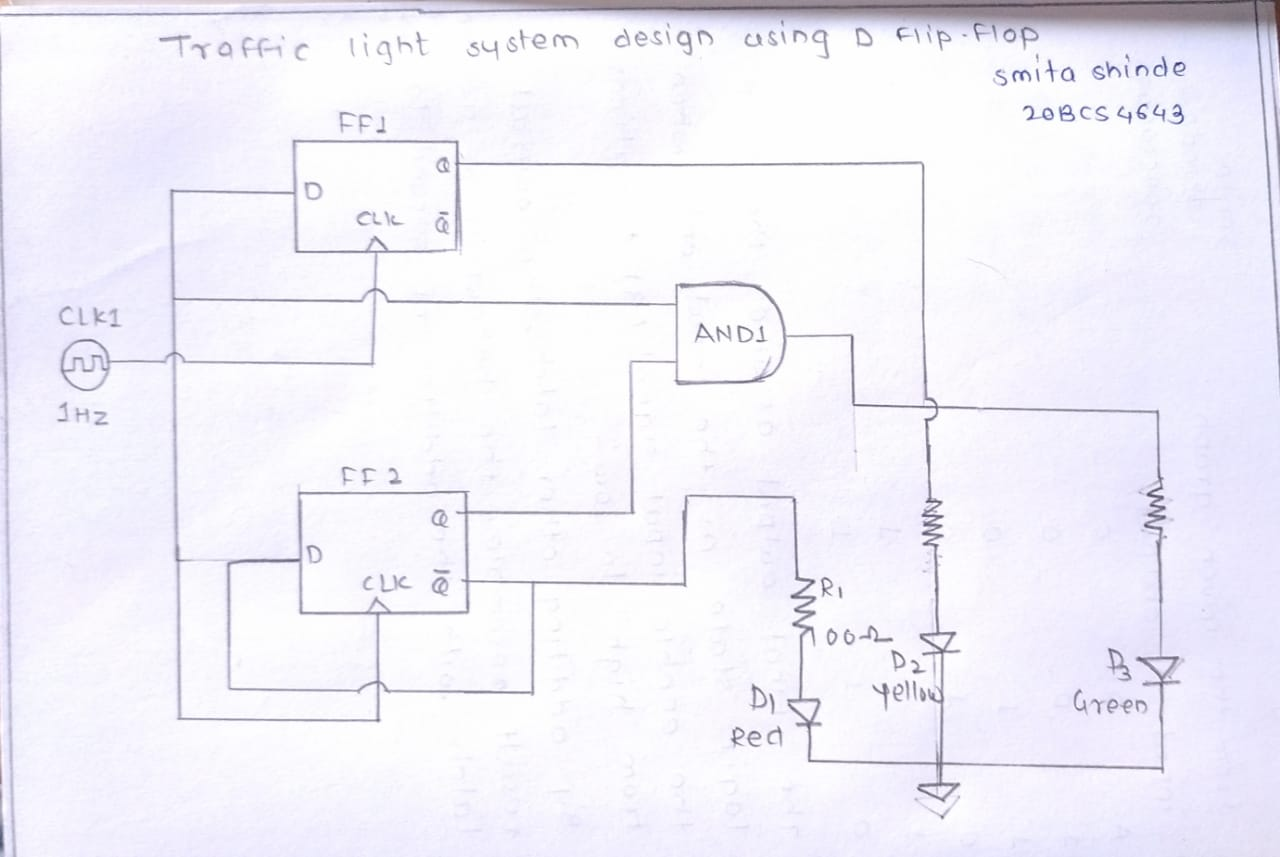 Traffic light system design using D Flip-Flop
smita shinde
20BCS4643
FF1
Q
D
CLK
Q̅
CLK1
1Hz
AND1
FF2
Q
D
CLK
Q̅
R1
100Ω
D1
Red
D2
yellow
D3
Green